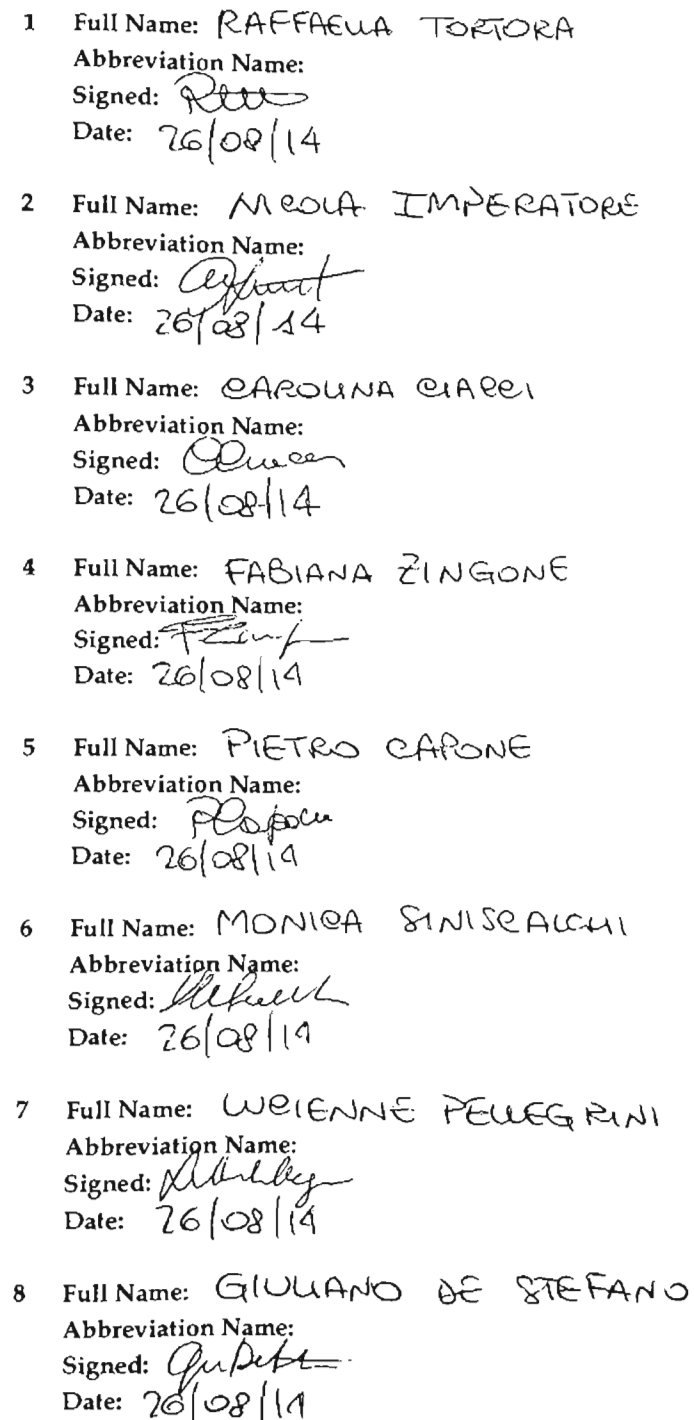 1 Full Name: RAFFAELLA TORTORA
Abbreviation Name:
Signed:
Date: 26/08/14
2 Full Name: NICOLA IMPERATORE
Abbreviation Name:
Signed:
Date: 26/08/14
3 Full Name: CAROLINA CIACCI
Abbreviation Name:
Signed:
Date: 26/08/14
4 Full Name: FABIANA ZINGONE
Abbreviation Name:
Signed:
Date: 26/08/14
5 Full Name: PIETRO CAPONE
Abbreviation Name:
Signed:
Date: 26/08/14
6 Full Name: MONICA SINISCALCHI
Abbreviation Name:
Signed:
Date: 26/08/14
7 Full Name: LUCIENNE PELLEGRINI
Abbreviation Name:
Signed:
Date: 26/08/14
8 Full Name: GIULIANO DE STEFANO
Abbreviation Name:
Signed:
Date: 26/08/14